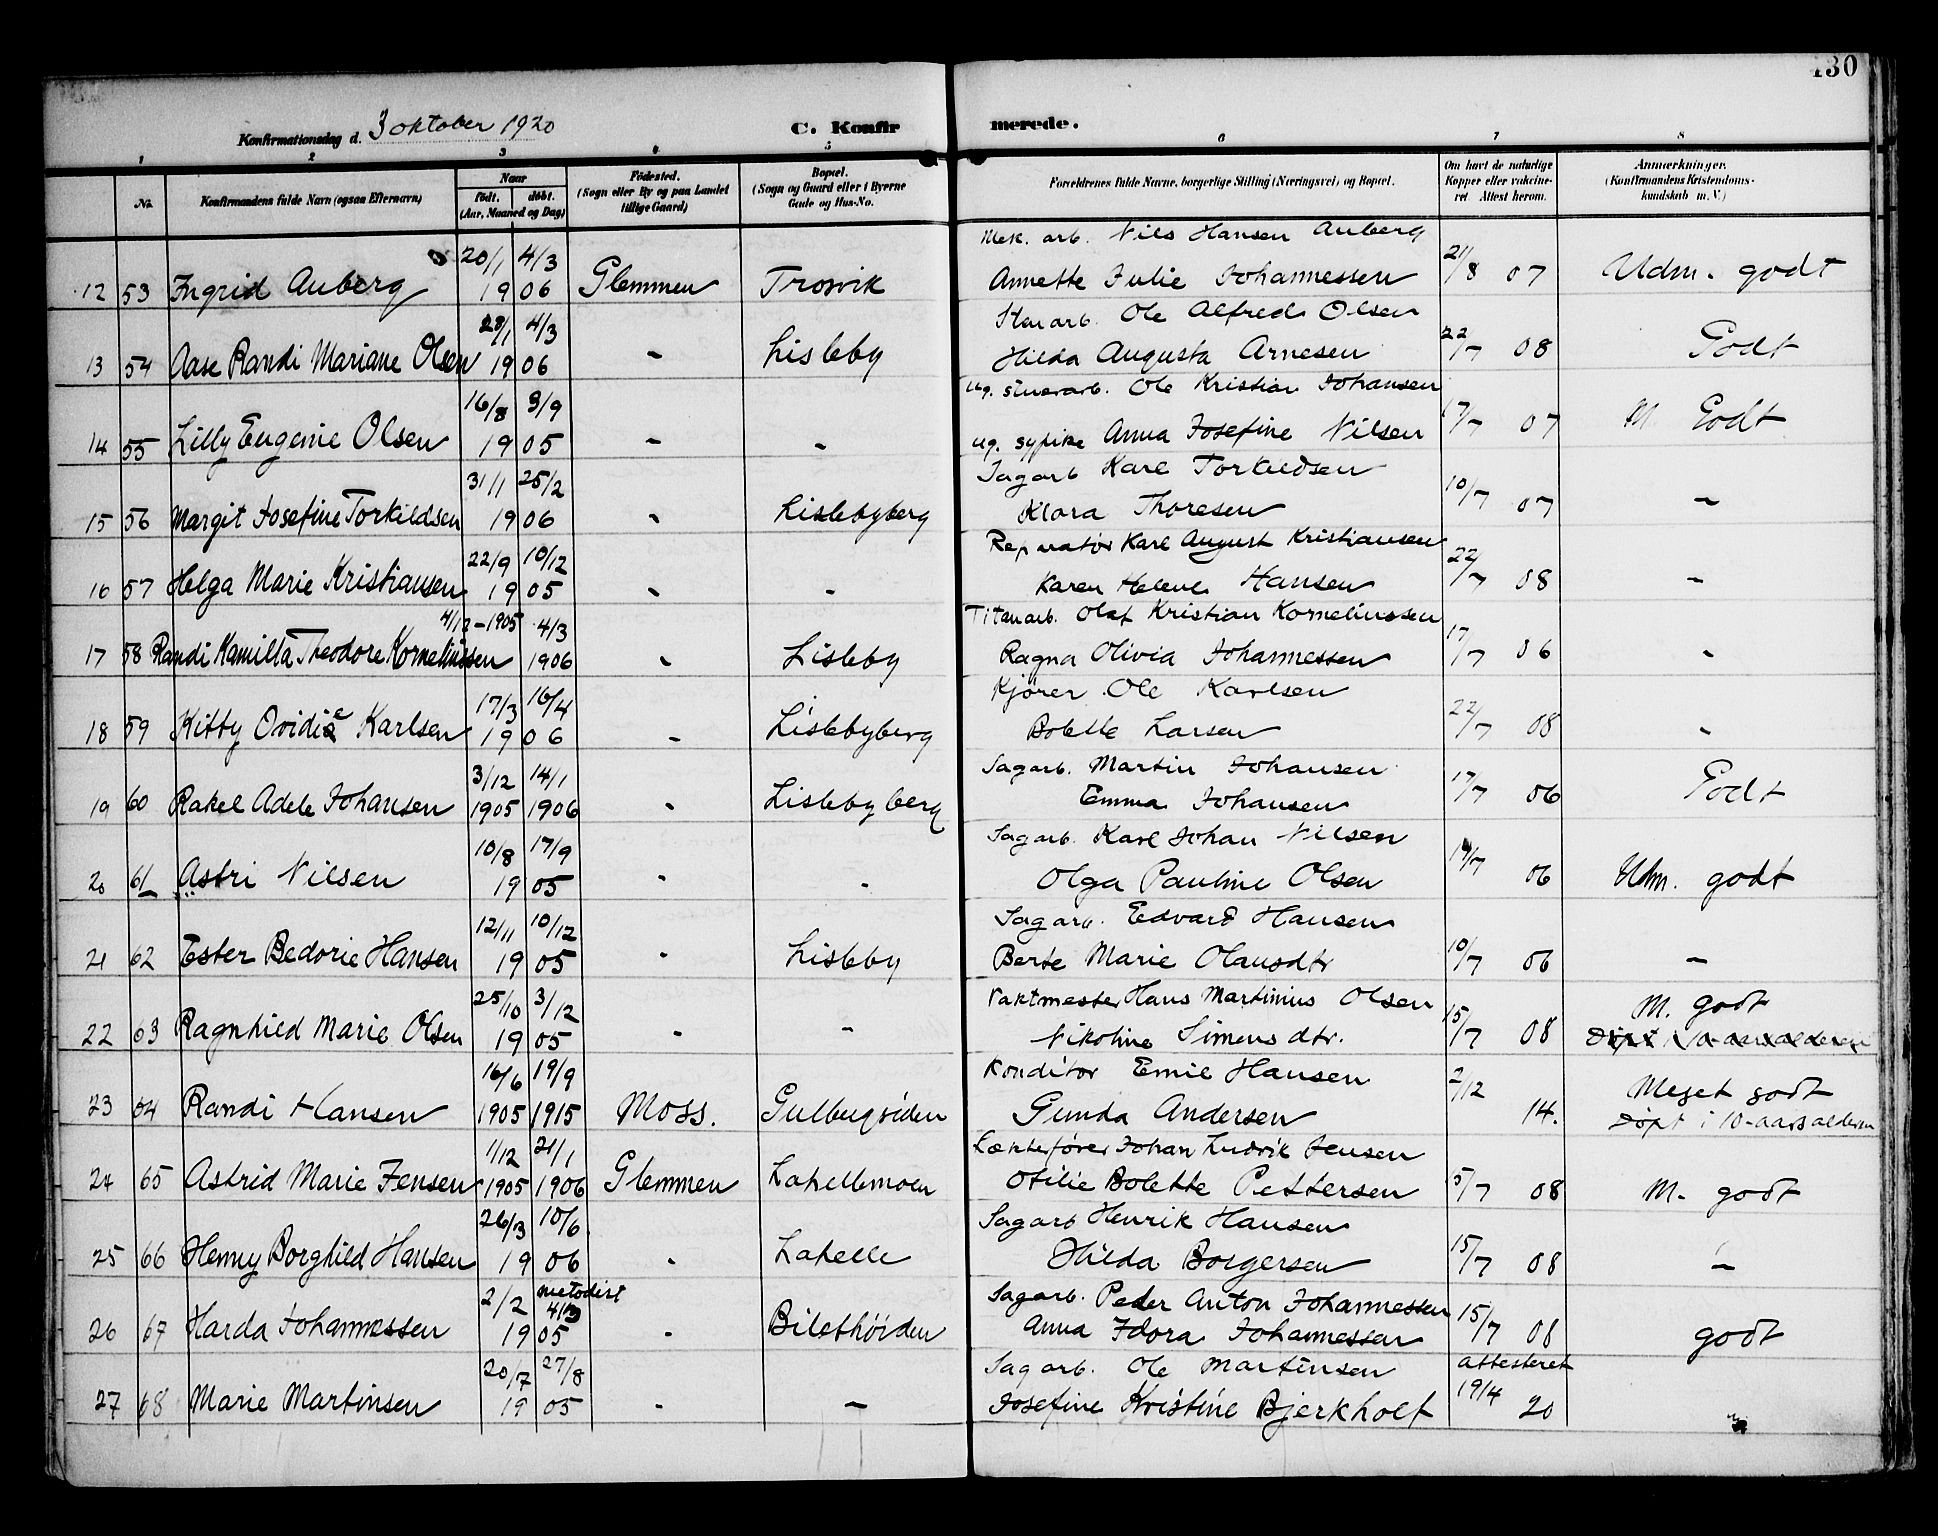 130
Konfirmationsdag d. 3 oktober 1920
C. Konfirmerede.
1 2 3 4 5 6 7 8
No.
Konfirmandens fulde Navn (ogsaa Efternavn)
Naar
født. døbt.
(Aar, Maaned og Dag)
Födested.
(Sogn eller By og paa Landet
tillige Gaard)
Bopæl.
(Sogn og Gaard eller i Byerne
Gade og Hus-No.
Forældrenes fulde Navne, borgerlige Stilling (Næringsvei) og Bopæl.
Om havt de naturlige
Kopper eller vakcine-
ret Attest herom.
Anmærkninger.
(Konfirmandens Kristendoms-
kundskab m. V.)
20/1 4/3 Mek. arb. Nils Hansen Auberg 21/8 07
12 53 Ingrid Auberg 19 06 Glemmen Trosvik Annette Julie Johannessen Udm. godt
28/1 4/3 Stenarb. Ole Alfred Olsen 22/7 08
13 54 Aase Randi Mariane Olsen 19 06 - Lisleby Hilda Augusta Arnesen Godt
16/8 3/9 ug. Ole Kristian Johansen 17/7 07
14 55 Lilly Eugenie Olsen 19 05 - - ug. sypike Anna Josefine Nilsen M. Godt
31/1 25/2 Sagarb Karl Torkildsen 10/7 07
15 56 Margit Josefine Torkildsen 19 06 - Lislebyberg Klara Thoresen -
22/9 10/12 Reparatør Karl August Kristiansen 22/7 08
16 57 Helga Marie Kristiansen 19 05 - - Karen Helene Hansen -
4/12-1905 4/3 Titanarb. Olaf Kristian Kornelinssen 17/7 06
17 58 Randi Kamilla Theodore Kornelinssen 1906 - Lisleby Ragna Olivia Johannessen -
17/3 16/4 Kjører Ole Karlsen 22/7 08
18 59 Kitty Ovidie Karlsen 19 06 - Lislebyberg Bolette Larsen -
3/12 14/1 Sagarb. Martin Johansen 17/7 06
19 60 Rakel Adele Johansen 1905 1906 - Lislebyberg Emma Johansen Godt
10/8 17/9 Sagarb. Karl Johan Nilsen 06
20 61 Astri Nilsen 19 05 - - Olga Pauline Olsen Udm. godt
12/11 10/12 Sagarb. Edvard Hansen 10/7 06
21 62 Ester Bedorie Hansen 19 05 - Lisleby Berte Marie Olausdtr -
25/10 3/12 Vaktmester Hans Martinius Olsen 15/7 08 M. godt
22 63 Ragnhild Marie Olsen 19 05 - - Nikoline Simensdtr. Døpt i 10-aarsalderen
16/6 19/9 Konditor Emil Hansen 2/12 14. Meget godt
23 64 Randi Hansen 1905 1915 Moss. Gulbergsiden Gunda Andersen Døpt i 10-aarsalderen
1/12 21/1 Lægtefører Johan Ludvik Jensen 5/7 08
24 65 Astrid Marie Jensen 1905 1906 Glemmen Lahellemoen Otilie Bolette Pettersen M. godt
26/3 10/6 Sagarb Henrik Hansen 15/7 08
25 66 Henny Borghild Hansen 19 06 - Lahelle Hilda Borgersen -
2/2 metodist 4/3 Sagarb. Peder Anton Johannessen 15/7 08
26 67 Harda Johannessen 19 05 - Bilethöiden Anna Idora Johannessen godt
20/7 27/8 Sagarb. Ole Martinsen attesteret 19/4 20
27 68 Marie Martinsen 19 05 - - Josefine Kristine Bjerkholt